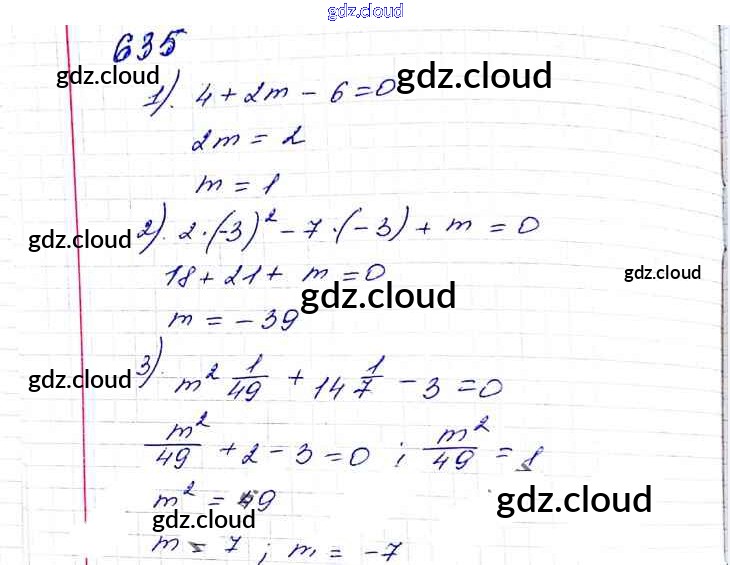 gdz.cloud
635
gdz.cloud
gdz.cloud
1). 4 + 2m - 6 = 0
2m = 2
m = 1
2). 2·(-3)² - 7·(-3) + m = 0
gdz.cloud
18 + 21 + m = 0
gdz.cloud
gdz.cloud
m = -39
3). m² 1/49 + 14 1/7 - 3 = 0
gdz.cloud
m²/49 + 2 - 3 = 0 ; m²/49 = 1
m² = 49
gdz.cloud
gdz.cloud
m = 7 ; m = -7